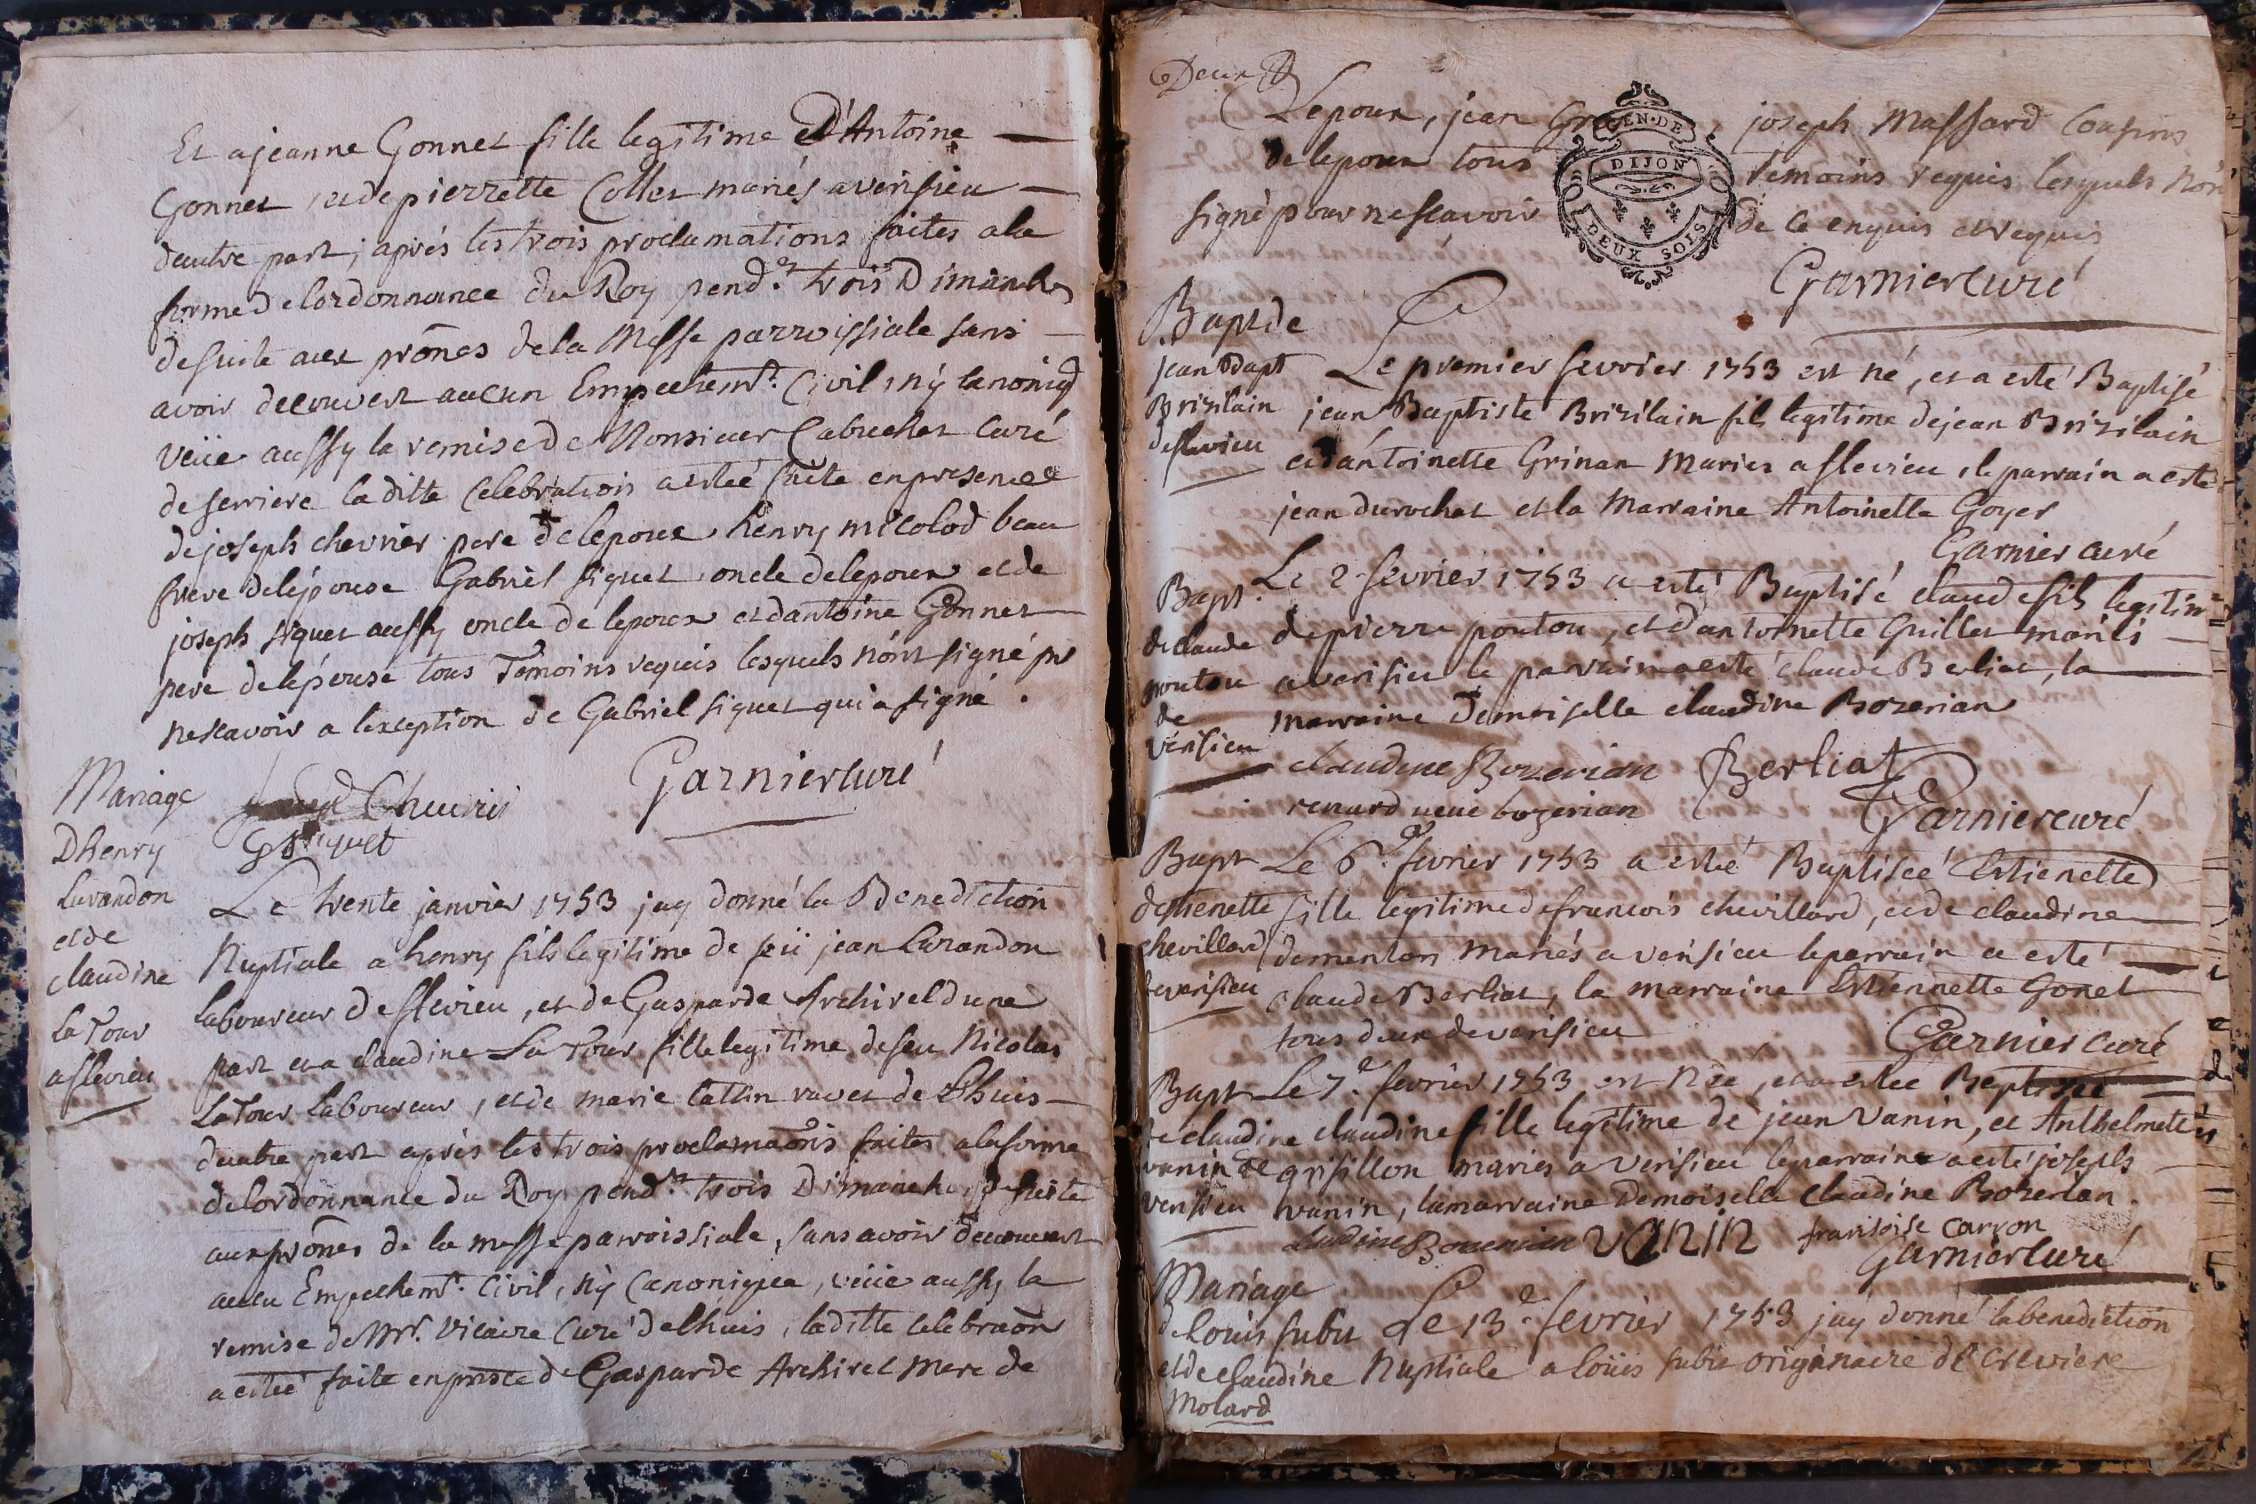 Et a jeanne Gonnet fille legitime D'Antoine
Gonnet, et de pierrette Collet mariés a verisieu
dautre part; aprés les trois proclamations faites a la
forme De lordonnance du Roy pend.t trois Dimanches
de suite aux prônes de la Messe parroissiale sans
avoir decouvert aucun Empechem.t Civil, ny canoniq
veüe aussy la remise de Monsieur Cabuchet curé
de serriere la ditte Celebration a estéé faite en presence
de joseph chevrier pere de lepoux henry micolod beau
frere de lépouse Gabriel siquet oncle de lepoux et de
joseph siquet aussy oncle de lepoux et dantoine Gonnet
pere de lépouse tous Témoins requis lesquels nónt signé pr
ne scavoir a lexception de Gabriel siquet qui a signé.
Garnier curé
Cheuriè
G Siquet
Mariage
Dhenry
Lurandon
et de
claudine
La Tour
a flevieu
Le trente janvier 1753 jay donné la Benediction
Nuptiale a henry fils legitime de feü jean Lurandon
laboureur de flevieu, et de Gasparde Archiret dune
part et a claudine La Tour fille legitime de feu Nicolas
LaTour laboureur, et de marie tattin ravet de Lhuis
dautre part aprés les trois proclamaõns faites a la forme
de lordonnance du Roy pend.t trois Dimanches de suite
aux prônes de la messe parroissiale, sans avoir decouvert
aucu Empechem.t Civil, ny Canonique, veüe aussy la
remise de Mr. vicaire curé de lhuis, la ditte celebraõn
a estéé faite en prñce de Gasparde Archiret mere de
Deux
Lepoux, jean joseph Massard Cousins
de lepoux tous temoins requis lesquels nón
signé pour ne scavoir de ce enquis et requis
GEN·DE
DIJON
DEUX SOLS
Garnier curé
Bapt de
jean Bapt
Brizilain
de flevieu
Le premier fevrier 1753 est né, et a esté Baptisé
jean Baptiste Brizilain fils legitime de jean Brizilain
et dántoinette Grinan Mariez a flevieu, le parrain a esté
jean durochat et la Marraine Antoinette Goyer
Garnier curé
Bapt.
de claude
poutou
de
verisieu
Le 2 fevrier 1753 a esté Baptisé claude fils legitim
de pierre poutou, et d'antoinette Guillet mariés
a verisieu le parrain a esté claude Berliat, la
marraine Demoiselle claudine Bozerian
claudine Bozerian Berliat
renard ueue bozerian
Garnier curé
Bapt
destienette
chevillard
de verisieu
Le 6.e fevrier 1753 a estéé Baptiséé Estienette
fille legitime de francois chevillard, et de claudine
dementon mariés a verisieu le parrain a esté
claude Berliat, la marraine Estiennette Gonet
tous deux de verisieu
Garnier curé
Bapt
de claudine
vanin de
verisieu
Le 7.e fevrier 1753 est Néé, et a estéé Baptiséé
claudine fille legitime de jean vanin, et Anthelmette
grisillon mariés a verisieu le parrain a esté joseph
vanin, la marraine Demoiselle claudine Bozerian.
claudine Bozerian vanin fransoise carron
Garnier curé
Mariage
de louis subit
et de claudine
Molard
Le 13.e fevrier 1753 jay donné la benediction
Nuptiale a loüis subit originaire de creviere